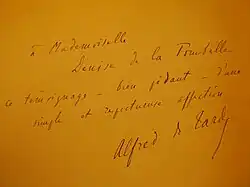 à Mademoiselle
Louise de la Tombelle
ce témoignage – bien pédant – d'une
simple et respectueuse affection
Alfred de Tarde